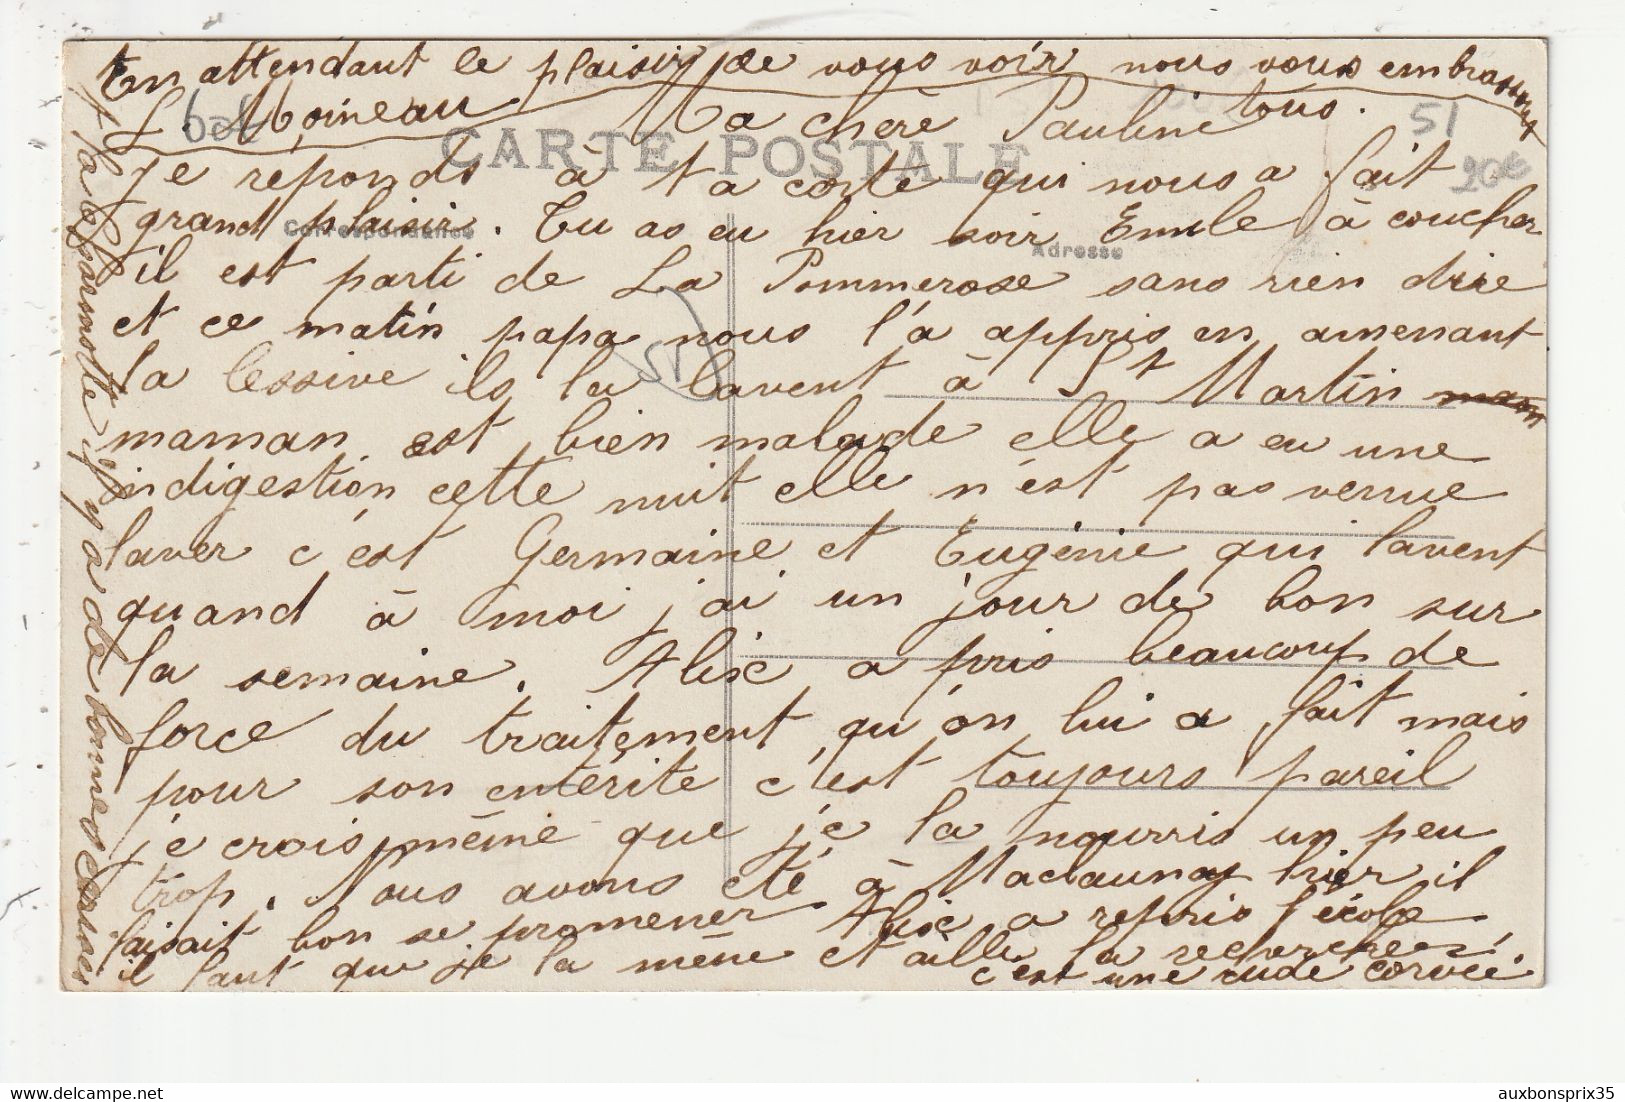 En attendant le plaisir de vous voir nous vous embrassons
L. Moineau tous.
Ma chère Pauline
CARTE POSTALE
51
20€
Je réponds à ta carte qui nous a fait
grand plaisir. Tu as eu hier soir Emile à coucher
Correspondance
Adresse
il est parti de La Pommerose sans rien dire
et ce matin papa nous l'a appris en amenant
la lessive ils la lavent à St Martin
51
maman est bien malade elle a eu une
indigestion cette nuit elle n'est pas venue
laver c'est Germaine et Eugénie qui lavent
quand à moi j'ai un jour de bon sur
la semaine. Alix a pris beaucoup de
force du traitement qu'on lui a fait mais
pour son entérite c'est toujours pareil
je crois même que je la nourris un peu
trop. Nous avons été à Maclaunay hier il
faisait bon se promener Alix a repris l'école
il faut que je la mène et aille la rechercher
c'est une rude corvée
à la Charmotte il y a de bonnes
auxbonsprix35